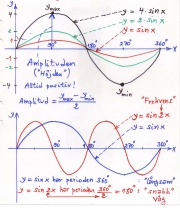 y max
y = 4·sin x
y = 2·sin x
y = sin x
90°
180°
270°
360°
x
Amplituden
("Höjden")
Alltid positiv!
Amplitud = (y max − y min) / 2
y min
"Frekvens"
y = sin 2x
90°
180°
270°
360°
x
y = sin x har perioden 360°
"långsam"
y = sin 2x har perioden 360°/2 = 180° : "snabb"
våg